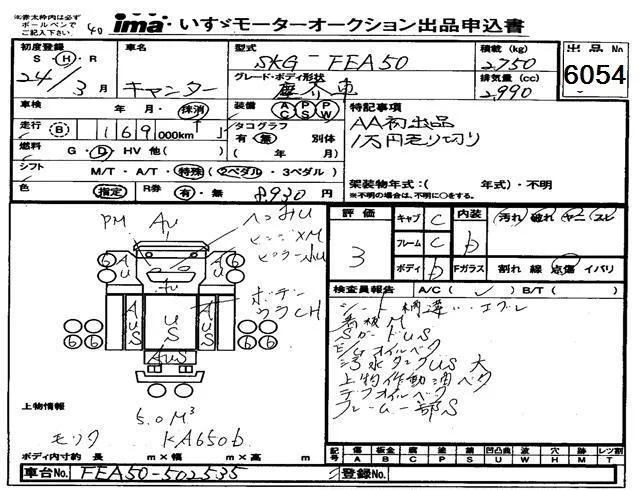 ※赤太枠内は必ず
ボールペンで
ご記入下さい。
40
ima いすゞモーターオークション出品申込書
初度登録
S・H・R
24/3月
車名
キャンター
型式
SKG-FEA50
グレード・ボディ形状
塵芥車
積載 (kg)
2,750
排気量 (cc)
2,990
出品No
6054
車検 年・月・抹消
装備 AC PS PW
特記事項
AA初出品
1万円売り切り
走行 B 169 000km
タコグラフ
有・無 別体
( 年 月)
燃料 G・D・HV 他( )
シフト M/T・A/T・特殊(2ペダル・3ペダル)
色 指定
R券 有・無 8930円
架装物年式:( 年式)・不明
※不明の場合は、不明に○をする。
評価
3
キャブ C
フレーム C
ボディ b
内装 b
汚れ 破れ ヤニ スレ
Fガラス 割れ 線 点傷 イバリ
検査員報告 A/C( ✓ ) B/T( )
シート柄違い・エグレ
看板M
SガードUS
汚水タンクUS大
上物作動油ベタ
デフオイルベタ
フレーム一部S
PM
AU
ヘッドAU
ボデー
ウラCH
AUS
US
AUS
AUS
上物情報
5.0M³
モリタ KA650b
ボディ内寸 約 m×幅 m×高 m
記号 傷A 板金B 腐C 塗P 錆S 凹凸曲U 波W 穴H 跡M レンツ割T
車台No. FEA50-502535
登録No.